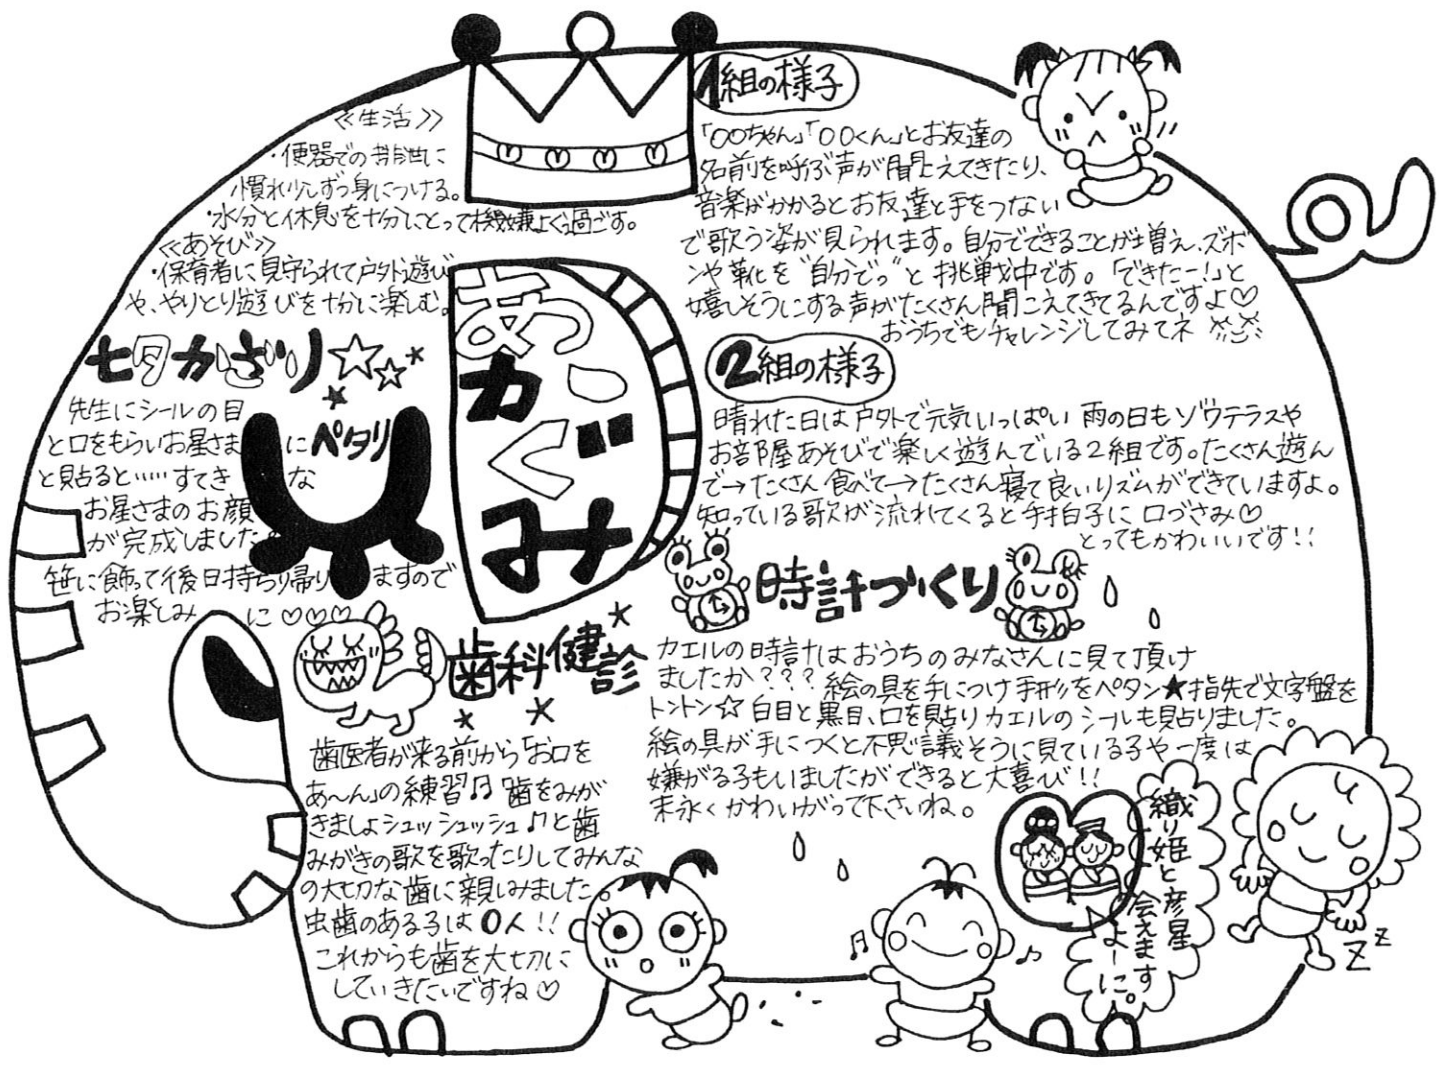 あかぐみ
≪生活≫
・便器での排泄に
慣れ少しずつ身につける。
・水分と休息を十分にとって機嫌よく過ごす。
≪あそび≫
・保育者に見守られて戸外遊び
や、やりとり遊びを十分に楽しむ。
七夕かざり☆☆★
先生にシールの目
と口をもらいお星さまにペタリ★
と貼ると……すてきな
お星さまのお顔
が完成しました
笹に飾って後日持ち帰りますので
お楽しみに♡♡♡
歯科健診
歯医者が来る前から「お口を
あ〜ん」の練習♫ 歯をみが
きましょシュッシュッシュ♫と歯
みがきの歌を歌ったりしてみんな
の大切な歯に親しみました。
虫歯のある子は0人!!
これからも歯を大切に
していきたいですね♡
1組の様子
「○○ちゃん」「○○くん」とお友達の
名前を呼ぶ声が聞こえてきたり、
音楽がかかるとお友達と手をつない
で歌う姿が見られます。自分でできることが増え、ズボ
ンや靴を“自分でっ”と挑戦中です。「できたー!」と
嬉しそうにする声がたくさん聞こえてきてるんですよ♡
おうちでもチャレンジしてみてネ
2組の様子
晴れた日は戸外で元気いっぱい 雨の日もゾウテラスや
お部屋あそびで楽しく遊んでいる2組です。たくさん遊ん
で→たくさん食べて→たくさん寝て良いリズムができていますよ。
知っている歌が流れてくると手拍子に口づさみ♡
とってもかわいいです!!
時計づくり
カエルの時計はおうちのみなさんに見て頂け
ましたか??? 絵の具を手につけ手形をペタン★指先で文字盤を
トントン☆ 白目と黒目、口を貼りカエルのシールも貼りました。
絵の具が手につくと不思議そうに見ている子や一度は
嫌がる子もいましたができると大喜び!!
末永くかわいがって下さいね。
織り姫と彦星
会えます
よーに。
ZZ